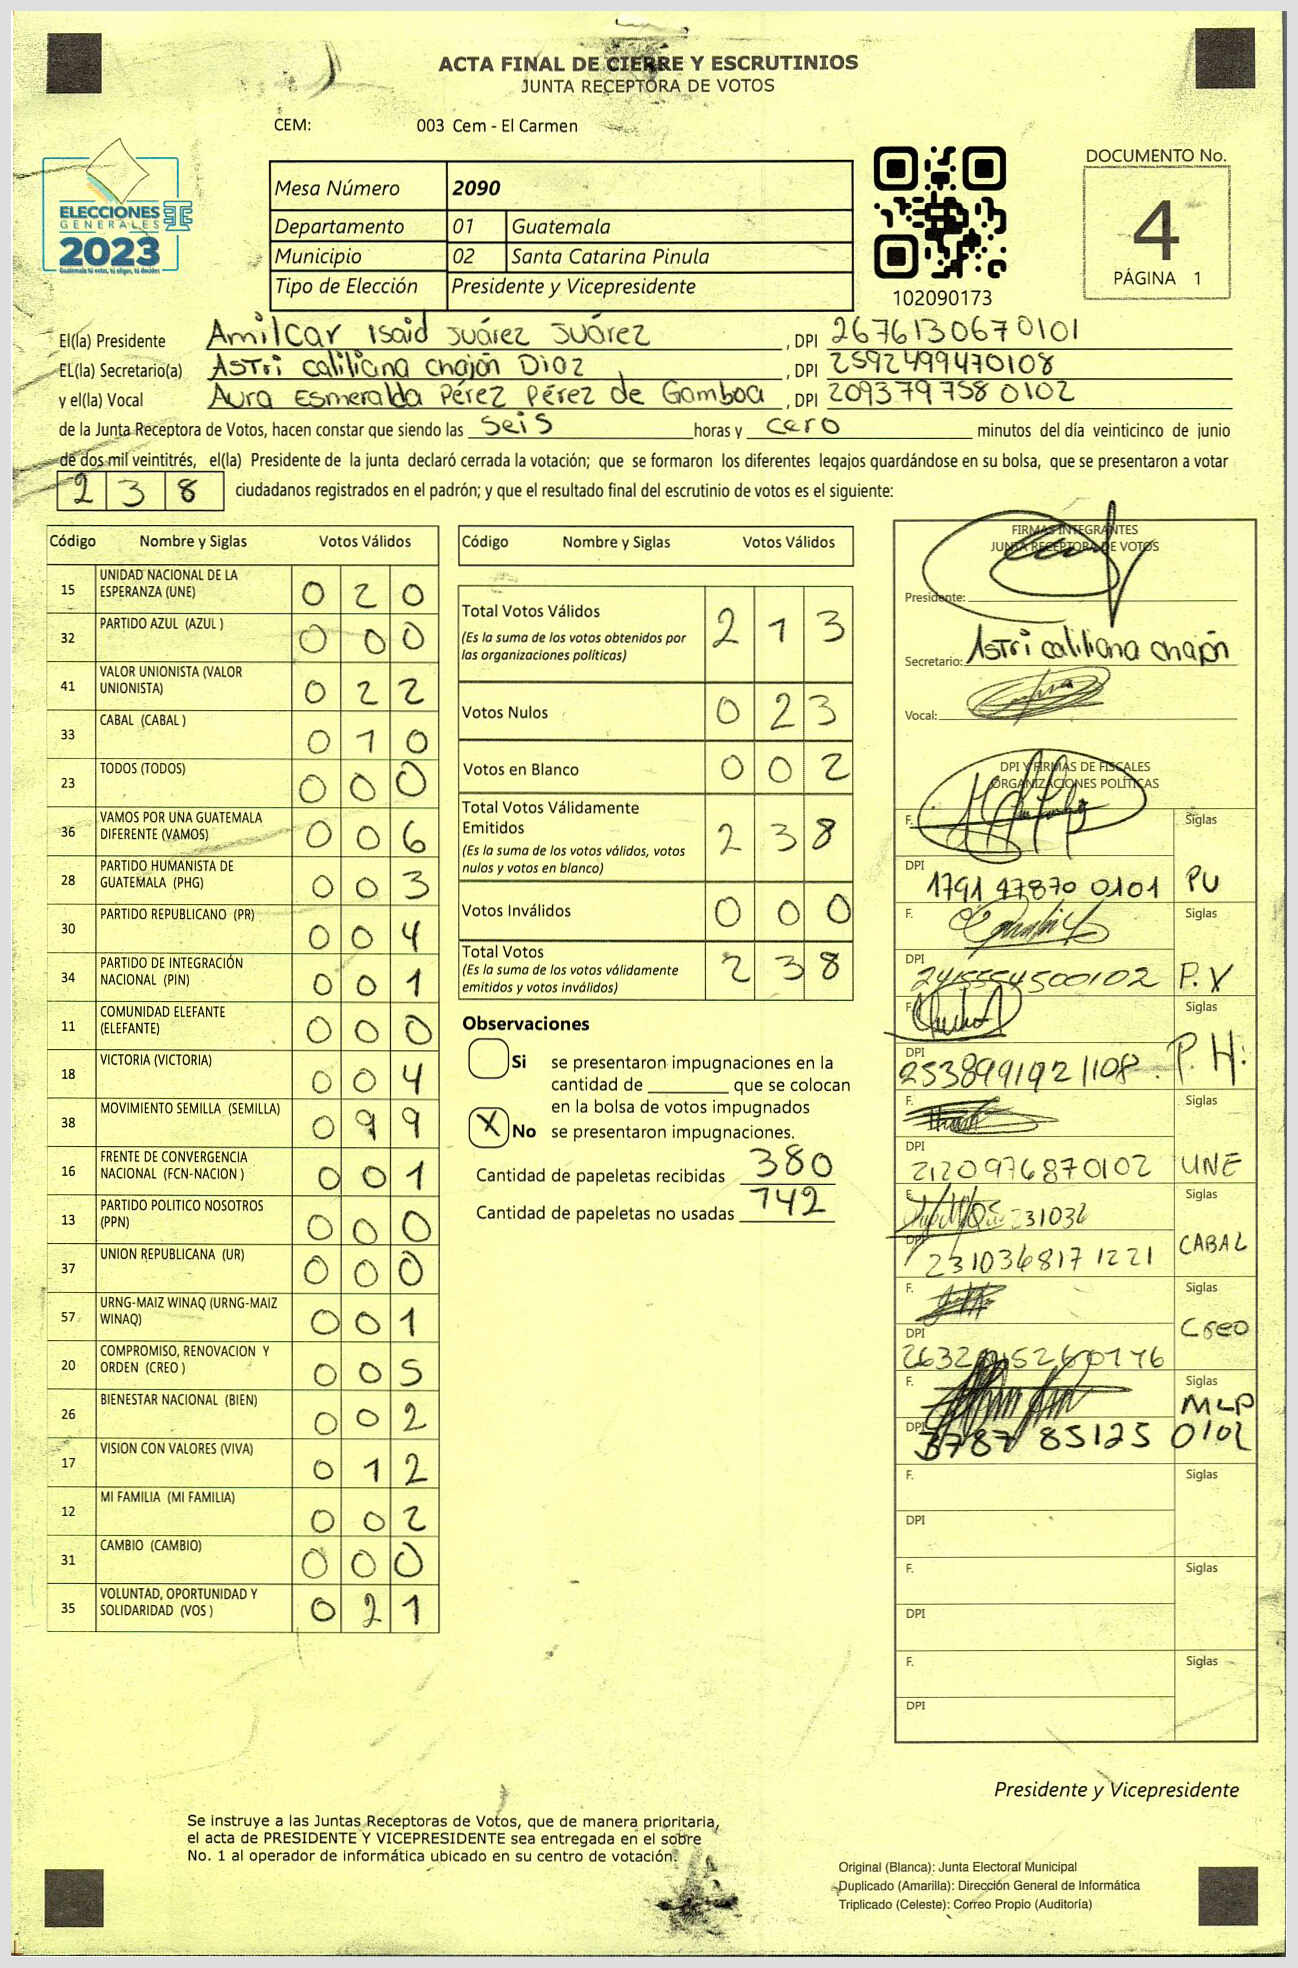 ACTA FINAL DE CIERRE Y ESCRUTINIOS
JUNTA RECEPTORA DE VOTOS
CEM: 003 Cem - El Carmen
ELECCIONES
GENERALES
2023
Guatemala tú votas, tú eliges, tú decides
Mesa Número 2090
Departamento 01 Guatemala
Municipio 02 Santa Catarina Pinula
Tipo de Elección Presidente y Vicepresidente
102090173
DOCUMENTO No.
4
PÁGINA 1
El(la) Presidente Amilcar Isaid Juárez Juárez, DPI 2676130670101
EL(la) Secretario(a) Astri caliliana chajón Diaz, DPI 2592499470108
y el(la) Vocal Aura Esmeralda Pérez Pérez de Gamboa, DPI 2093797580102
de la Junta Receptora de Votos, hacen constar que siendo las seis horas y cero minutos del día veinticinco de junio
de dos mil veintitrés, el(la) Presidente de la junta declaró cerrada la votación; que se formaron los diferentes legajos guardándose en su bolsa, que se presentaron a votar
238 ciudadanos registrados en el padrón; y que el resultado final del escrutinio de votos es el siguiente:
Código Nombre y Siglas Votos Válidos
15 UNIDAD NACIONAL DE LA ESPERANZA (UNE) 0 2 0
32 PARTIDO AZUL (AZUL ) 0 0 0
41 VALOR UNIONISTA (VALOR UNIONISTA) 0 2 2
33 CABAL (CABAL ) 0 1 0
23 TODOS (TODOS) 0 0 0
36 VAMOS POR UNA GUATEMALA DIFERENTE (VAMOS) 0 0 6
28 PARTIDO HUMANISTA DE GUATEMALA (PHG) 0 0 3
30 PARTIDO REPUBLICANO (PR) 0 0 4
34 PARTIDO DE INTEGRACIÓN NACIONAL (PIN) 0 0 1
11 COMUNIDAD ELEFANTE (ELEFANTE) 0 0 0
18 VICTORIA (VICTORIA) 0 0 4
38 MOVIMIENTO SEMILLA (SEMILLA) 0 9 9
16 FRENTE DE CONVERGENCIA NACIONAL (FCN-NACION ) 0 0 1
13 PARTIDO POLITICO NOSOTROS (PPN) 0 0 0
37 UNION REPUBLICANA (UR) 0 0 0
57 URNG-MAIZ WINAQ (URNG-MAIZ WINAQ) 0 0 1
20 COMPROMISO, RENOVACION Y ORDEN (CREO ) 0 0 5
26 BIENESTAR NACIONAL (BIEN) 0 0 2
17 VISION CON VALORES (VIVA) 0 1 2
12 MI FAMILIA (MI FAMILIA) 0 0 2
31 CAMBIO (CAMBIO) 0 0 0
35 VOLUNTAD, OPORTUNIDAD Y SOLIDARIDAD (VOS ) 0 2 1
Código Nombre y Siglas Votos Válidos
Total Votos Válidos 2 1 3
(Es la suma de los votos obtenidos por
las organizaciones políticas)
Votos Nulos 0 2 3
Votos en Blanco 0 0 2
Total Votos Válidamente
Emitidos 2 3 8
(Es la suma de los votos válidos, votos
nulos y votos en blanco)
Votos Inválidos 0 0 0
Total Votos 2 3 8
(Es la suma de los votos válidamente
emitidos y votos inválidos)
Observaciones
Si se presentaron impugnaciones en la
cantidad de ________ que se colocan
en la bolsa de votos impugnados
X No se presentaron impugnaciones.
Cantidad de papeletas recibidas 380
Cantidad de papeletas no usadas 742
FIRMAS INTEGRANTES
JUNTA RECEPTORA DE VOTOS
Presidente:
Secretario: Astri caliliana chajón
Vocal:
DPI Y FIRMAS DE FISCALES
ORGANIZACIONES POLÍTICAS
F. Siglas
DPI 1791 47870 0101 PU
F. Siglas
DPI 2415554500102 P.V
F. Siglas
DPI P.H:
F. Siglas
DPI 2120976870102 UNE
F. 231036 Siglas
DPI 2310368171221 CABAL
F. Siglas
DPI Creo
F. Siglas
MLP
DPI 3787 85125 0102
F. Siglas
DPI
F. Siglas
DPI
F. Siglas
DPI
Presidente y Vicepresidente
Se instruye a las Juntas Receptoras de Votos, que de manera prioritaria,
el acta de PRESIDENTE Y VICEPRESIDENTE sea entregada en el sobre
No. 1 al operador de informática ubicado en su centro de votación.
Original (Blanca): Junta Electoral Municipal
Duplicado (Amarilla): Dirección General de Informática
Triplicado (Celeste): Correo Propio (Auditoría)